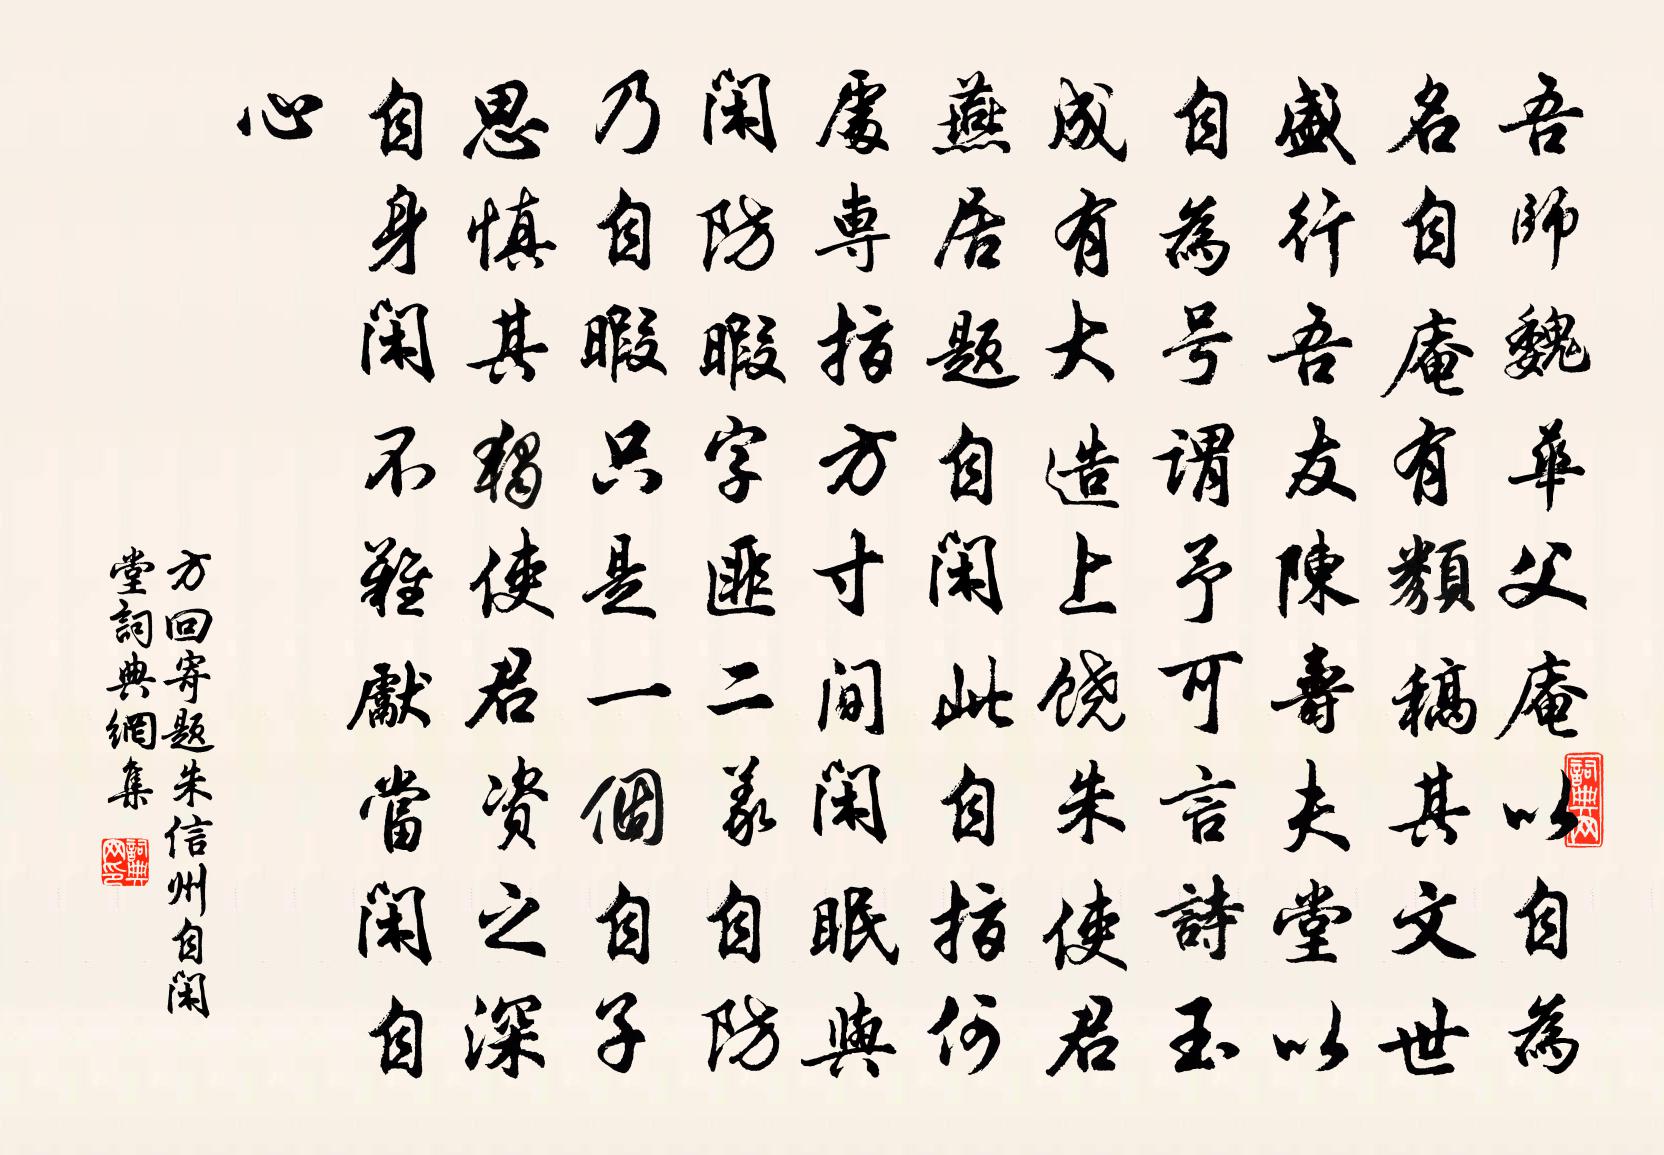 吾師魏華父庵以自為
名自庵有類稿其文世
盛行吾友陳壽夫堂以
自為号謂予可言詩玉
成有大造上饒朱使君
燕居題自閑此自指何
處専指方寸间閑眠與
閑防暇字匪二義自防
乃自暇只是一個自子
思慎其獨使君資之深
自身閑不難獻當閑自
心
方回寄題朱信州自閑
堂詞典網集
詞典网
詞典网印